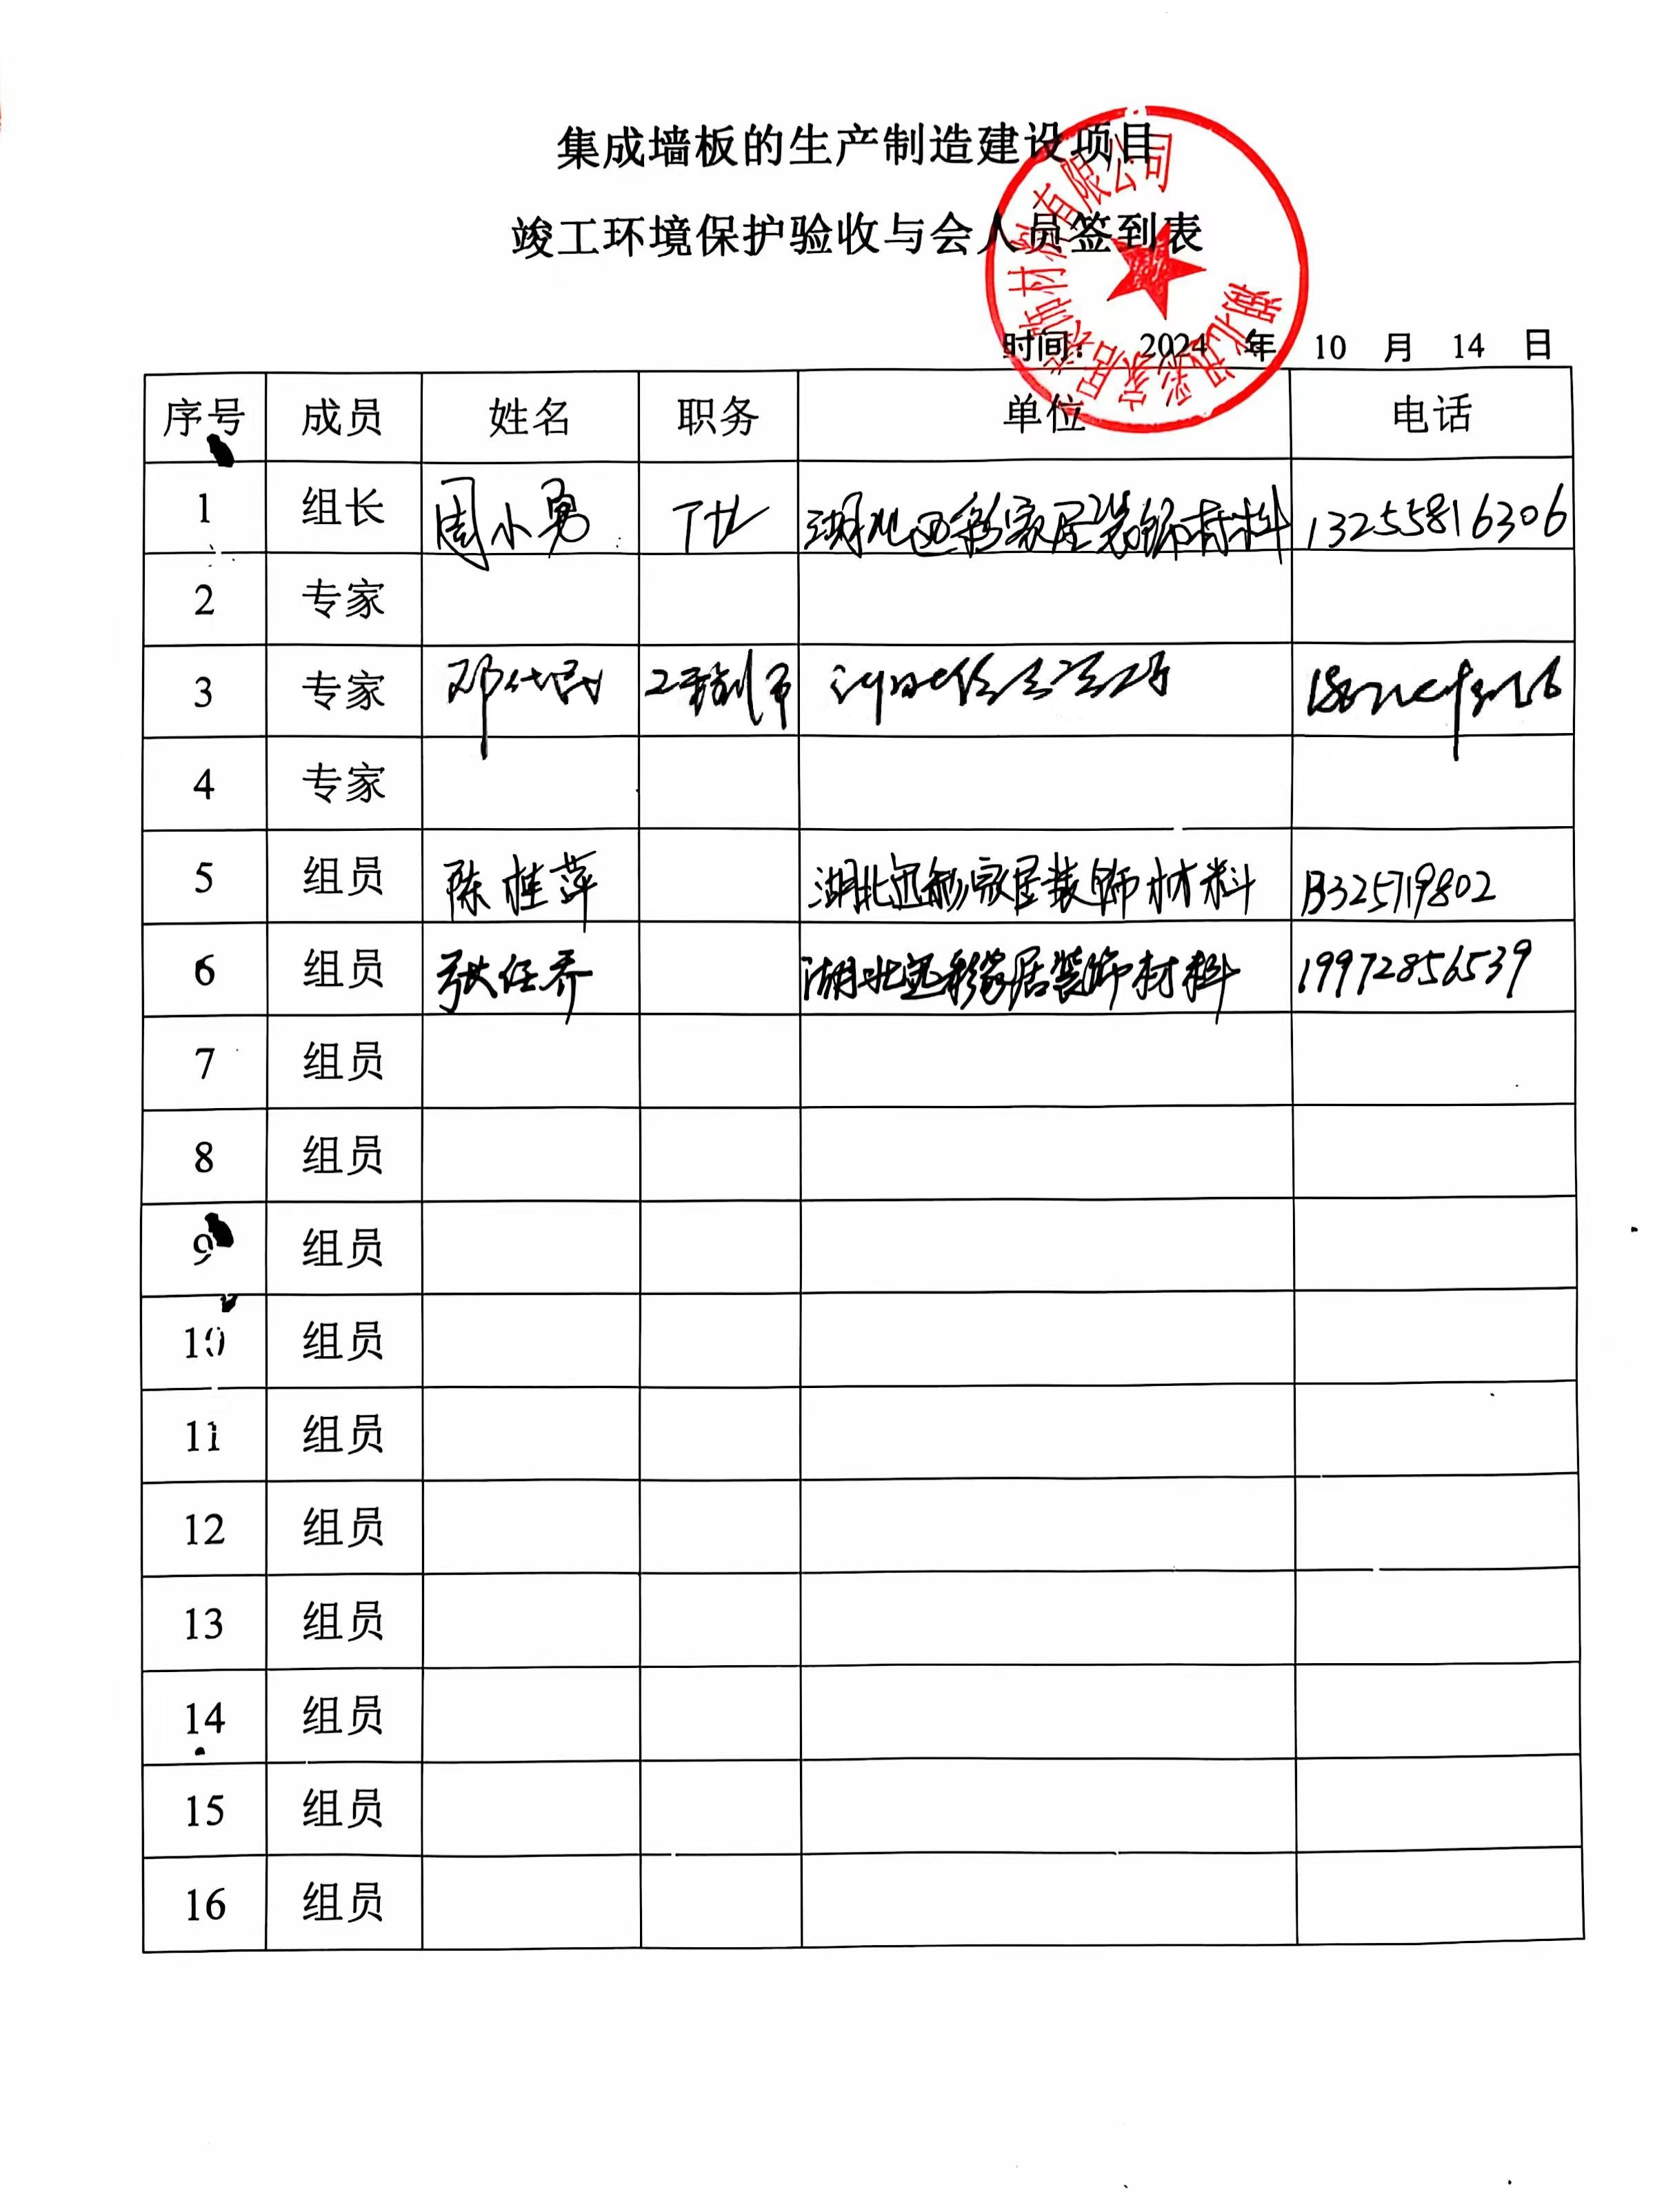 集成墙板的生产制造建设项目
竣工环境保护验收与会人员签到表
湖北迅彩家居装饰材料有限公司
时间: 2024 年 10 月 14 日
序号 成员 姓名 职务 单位 电话
1 组长 周小勇 湖北迅彩家居装饰材料 13255816306
2 专家
3 专家 邓代强 工程师
4 专家
5 组员 陈桂萍 湖北迅彩家居装饰材料 13325719802
6 组员 张任乔 湖北迅彩家居装饰材料 19972856539
7 组员
8 组员
9 组员
10 组员
11 组员
12 组员
13 组员
14 组员
15 组员
16 组员